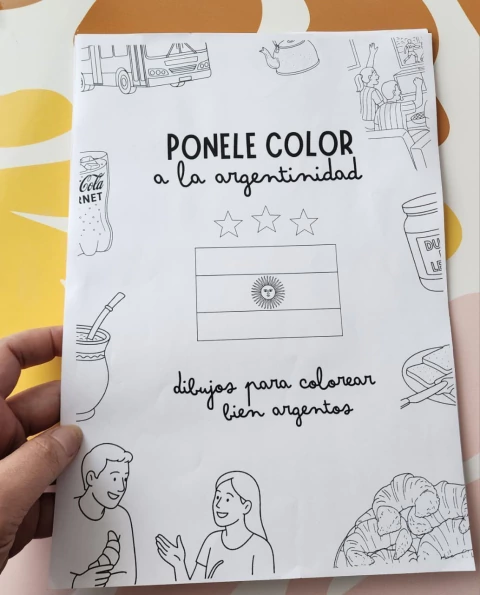 PONELE COLOR
a la argentinidad
Cola
RNET
DU
LE
dibujos para colorear
bien argentos